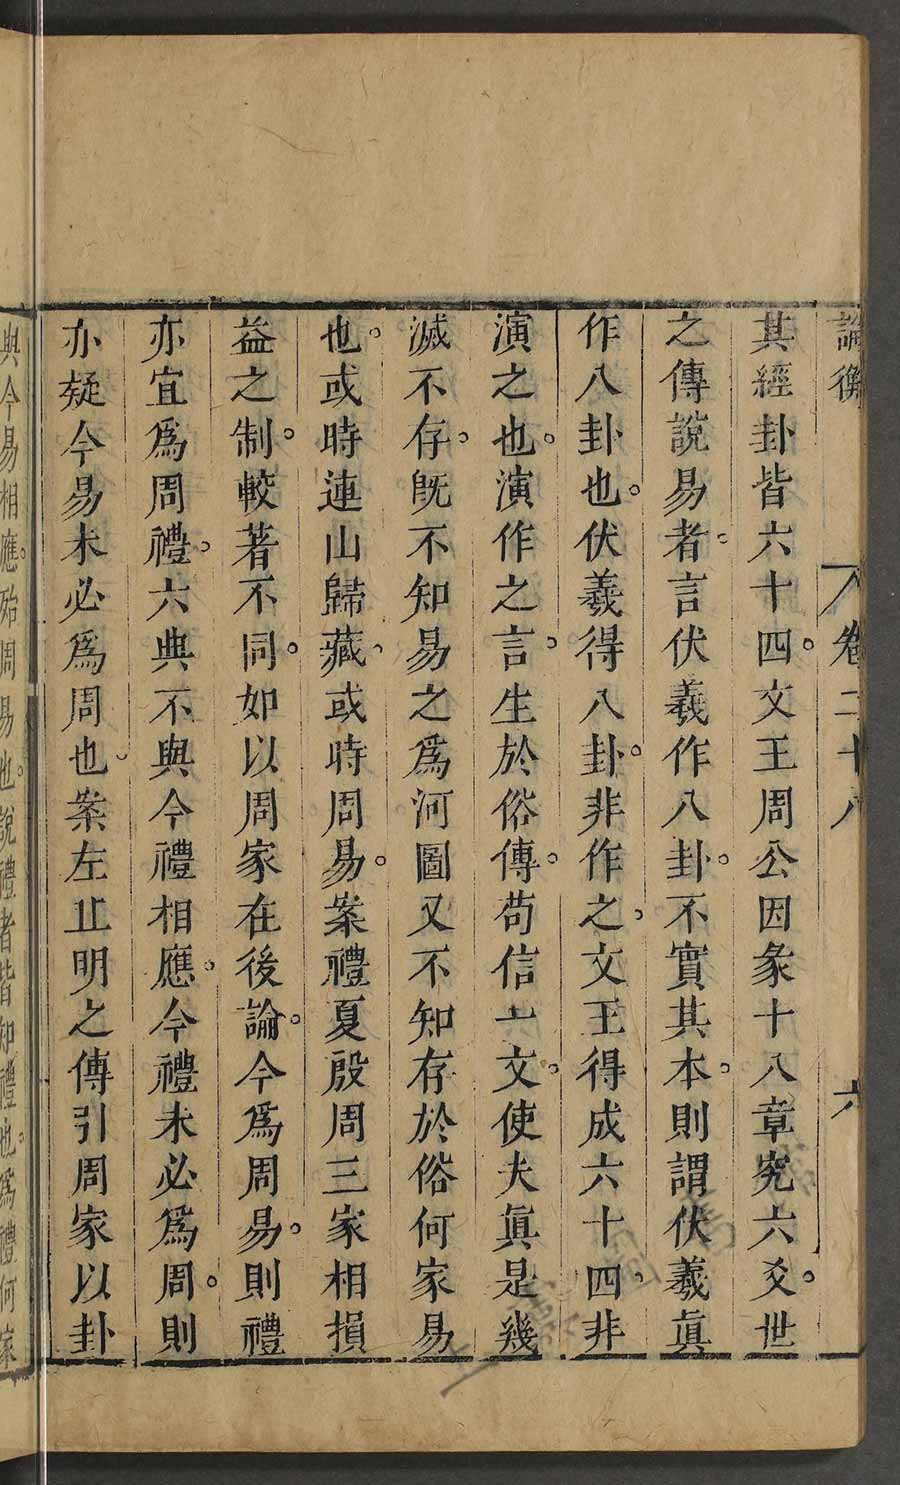 論衡 卷二十八 六
其經卦皆六十四。文王周公因彖十八章究六爻。世
之傳說易者。言伏羲作八卦。不實其本。則謂伏羲眞
作八卦也。伏羲得八卦。非作之。文王得成六十四。非
演之也。演作之言。生於俗傳。苟信一文。使夫眞是幾
滅不存。旣不知易之爲河圖又不知存於俗何家易
也。或時連山歸藏。或時周易。案禮夏殷周三家相損
益之制。較著不同。如以周家在後論。今爲周易。則禮
亦宜爲周禮。六典不與今禮相應。今禮未必爲周。則
亦疑今易未必爲周也。案左丘明之傳引周家以卦
與今易相應。殆周易也。說禮者皆知禮也。爲禮何家